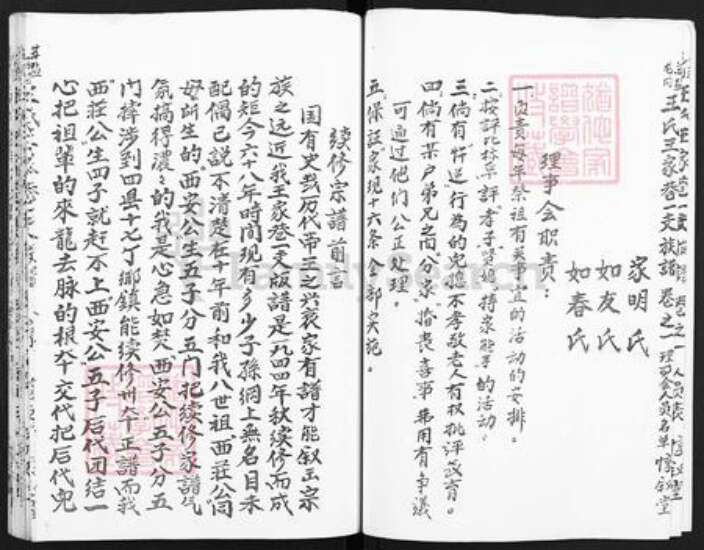 王氏王家巷一支族譜 卷之一 理事会人員名单 惇敘堂
家明氏
如友氏
如春氏
理事会职责：
一、負責每年祭祖有关事宜的活动的安排。
二、按評比條件評孝子賢媳持家能手的活动。
三、倘有忤逆行為的兒媳不孝敬老人有权批评教育。
四、倘有某户弟兄之间分家、婚丧喜事、费用有争議
可通过他们公正处理。
五、保証家规十六条全部实施。
续修宗譜前言
国有史载历代帝王之兴衰家有譜才能叙正宗
族之远近我王家巷一支版譜是一九四四年秋续修而成
的距今六十八年時間现有多少子孫網上無名目未
配偶已説不清楚在十年前和我八世祖"西莊公"同
母所生的"西安公"生五子分五门把续修家譜气
氛搞得濃濃的我是心急如焚"西安公"五子分五
门牽涉到四县十七个鄉鎮能续修卅本正譜而我
"西莊公"生四子就赶不上"西安公"五子后代团结一
心把祖輩的來龍去脉的根本交代把后代兒
FamilySearch